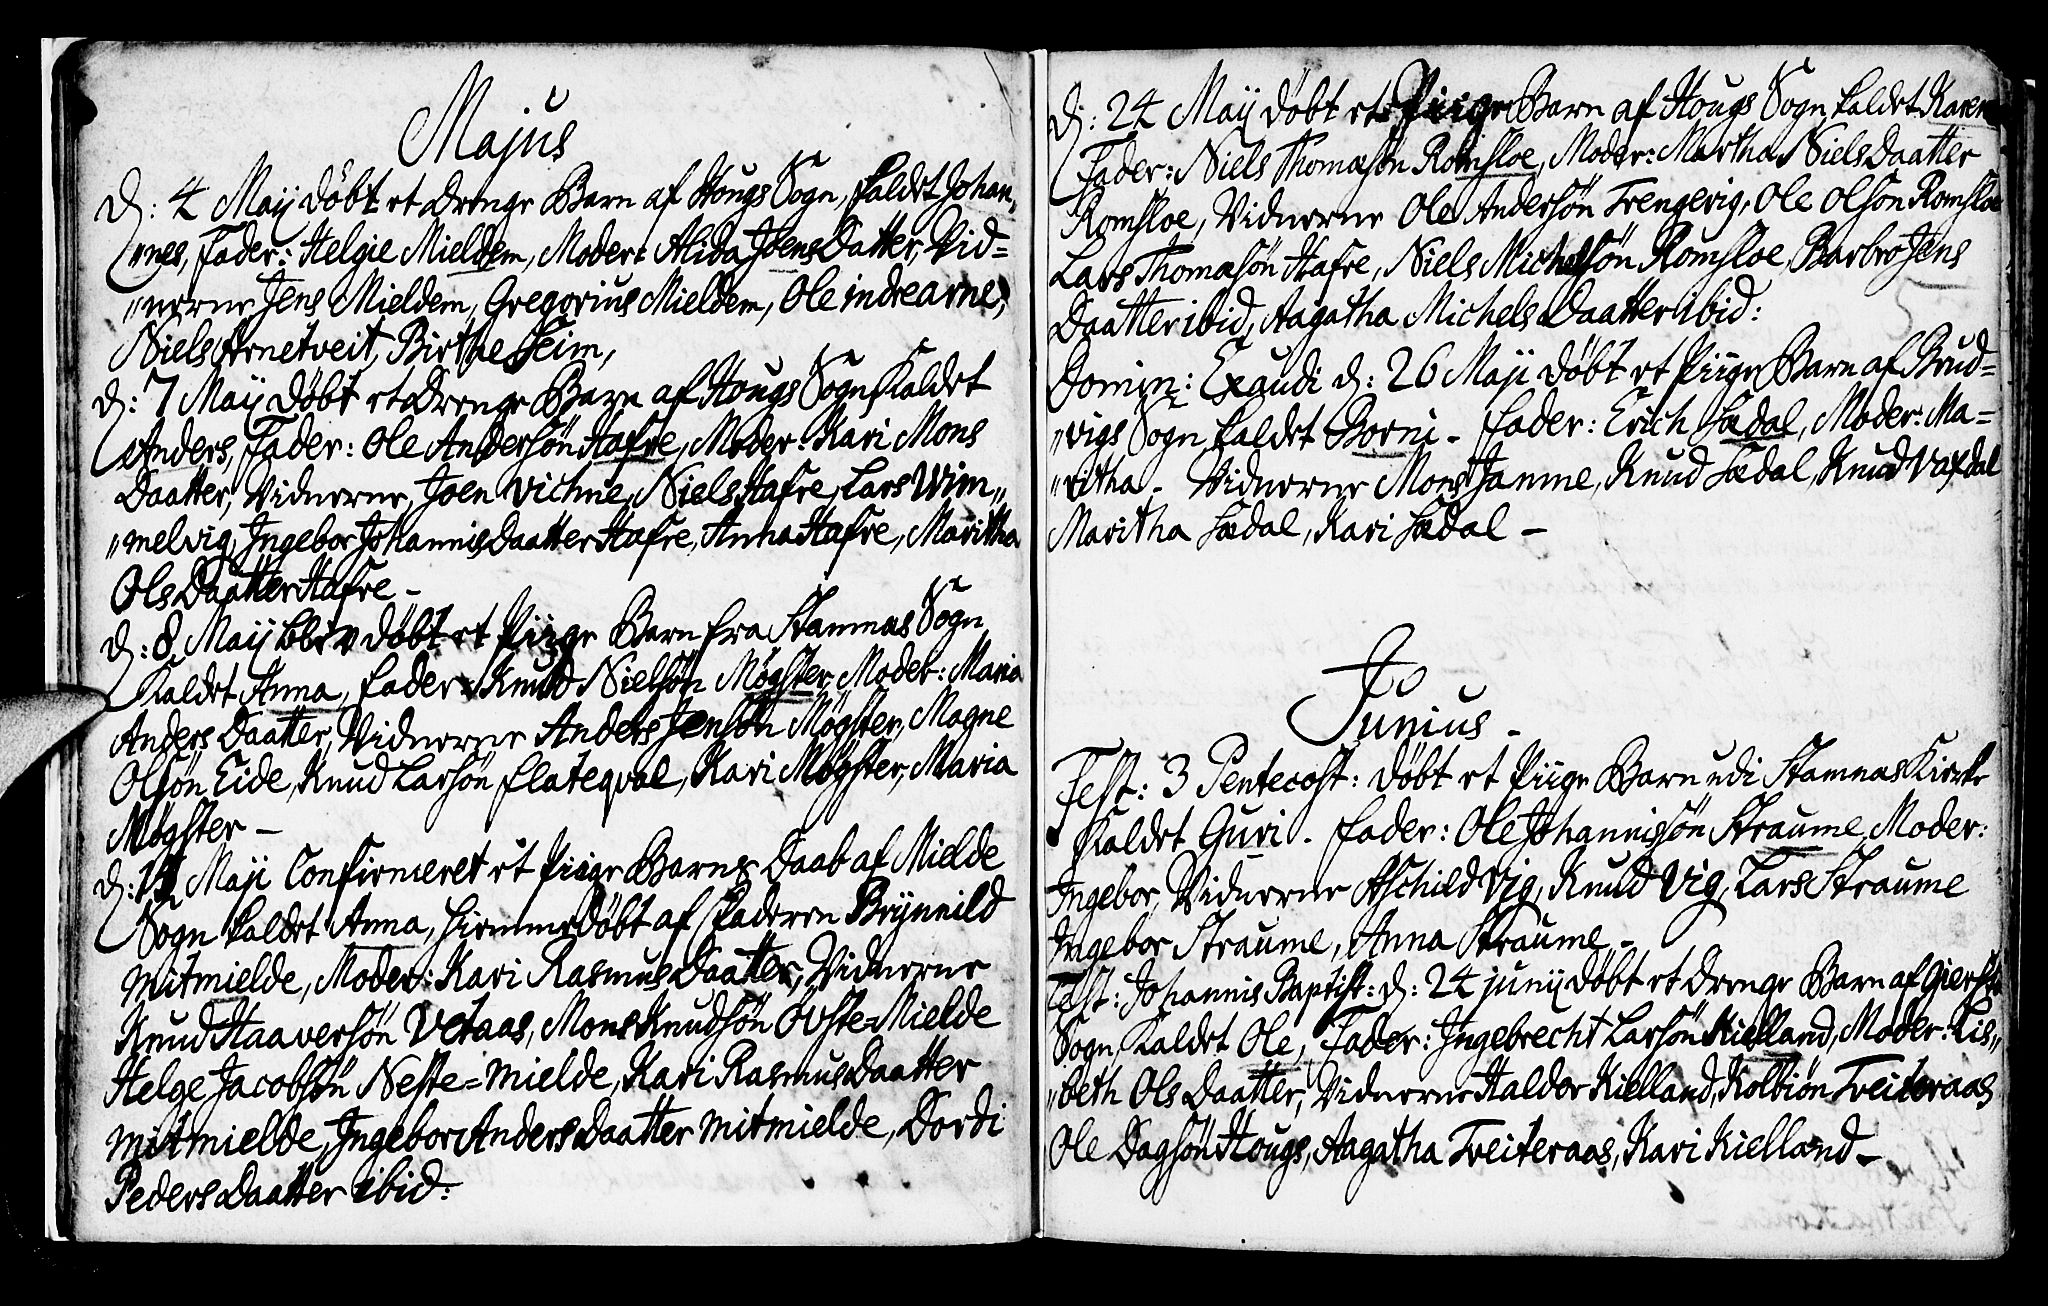 Majus
d: 4 Maij døbt et Drenge Barn af Hougs Sogn, kaldet Johan,
"nes, Fader: Helgie Mieldem, Moder: Alida Joens Datter, Vid=
"nerne Jens Mieldem, Gregorius Mieldem, Ole indrearne,
Niels Arnetveit, Birthe Seim,
d: 7 Maij døbt et Drenge Barn af Hougs Sogn kaldet
Anders, Fader: Ole Andersøn Hafre, Moder: Kari Mons
Daatter, Vidnerne, Joen Vichne, Niels Hafre, Lars Wim,,
"melvig, Ingebor Johannis Daatter Hafre, Anna Hafre, Maritha
Ols Daatter Hafre –
d: 8 Maij blev døbt et Piige Barn fra Stamnæs Sogn
Kaldet Anna, Fader: Knud Nielsøn Møgster, Moder: Maria
Anders Daatter, Vidnerne Anders Jensøn Møgster, Magne
Olsøn Eide, Knud Larsøn Flateqval, Kari Møgster, Maria
Møgster –
d: Maji Confirmeret et Piige Barns Daab af Mielde
Sogn kaldet Anna, hiemmedøbt af Faderen Brynnild
Mitmielde, Moder: Kari Rasmus Daatter, Vidnerne
Knud Haaversøn Vetaas, Mons Knudsøn Øvste=Mielde
Helge Jacobsøn Neste=mielde, Kari Rasmus Daatter
Mitmielde, Ingebor Anders Daatter Mitmielde, Dordi
Peders Daatter ibid:
d: 24 Maij døbt et Piige Barn af Hougs Sogn kaldet Karen
Fader: Niels Thomasøn Romsloe, Moder: Martha Niels Daatter
Romsloe, Vidnerne Ole Andersøn Trengerig, Ole Olson Romsloe
Lars Thomasøn Hafre, Niels Michelsøn Romsloe, Barbro Jens
Daatter ibid, Aagatha Michels Daatter ibid:
Domin: Exaudi d: 26 Maji døbt et Piige Barn af Brud=
"vigs Sogn kaldet Borni – Fader: Erich Sædal, Moder: Ma=
"ritha – Vidnerne Mons Jamne, Knud Sædal, Knud Vaxdal
Maritha Sædal, Kari Sædal –
Junius –
Fest: 3 Pentecost: døbt et Piige Barn udi Stamnæs Kirke
Kaldet Guri – Fader: Ole Johannissøn Straume, Moder:
Ingebor, Vidnerne Aschild Vig, Knud Vig, Lars Straume
Ingebor Straume, Anna Straume –
Fest: Johannis Baptist: d: 24 junij døbt et Drenge Barn af
Sogn, Kaldet Ole, Fader: Ingebrecht Larsøn Kielland, Moder: Lis,,
"beth Ols Daatter, Vidnerne Haldor Kielland, Kolbiøn Treiteraas
Ole Dagsøn Hougs, Aagatha Treiteraas, Kari Kielland –